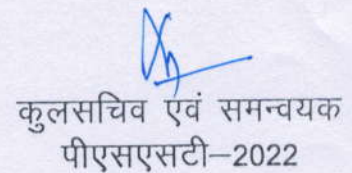 कुलसचिव एवं समन्वयक
पीएसएसटी–2022